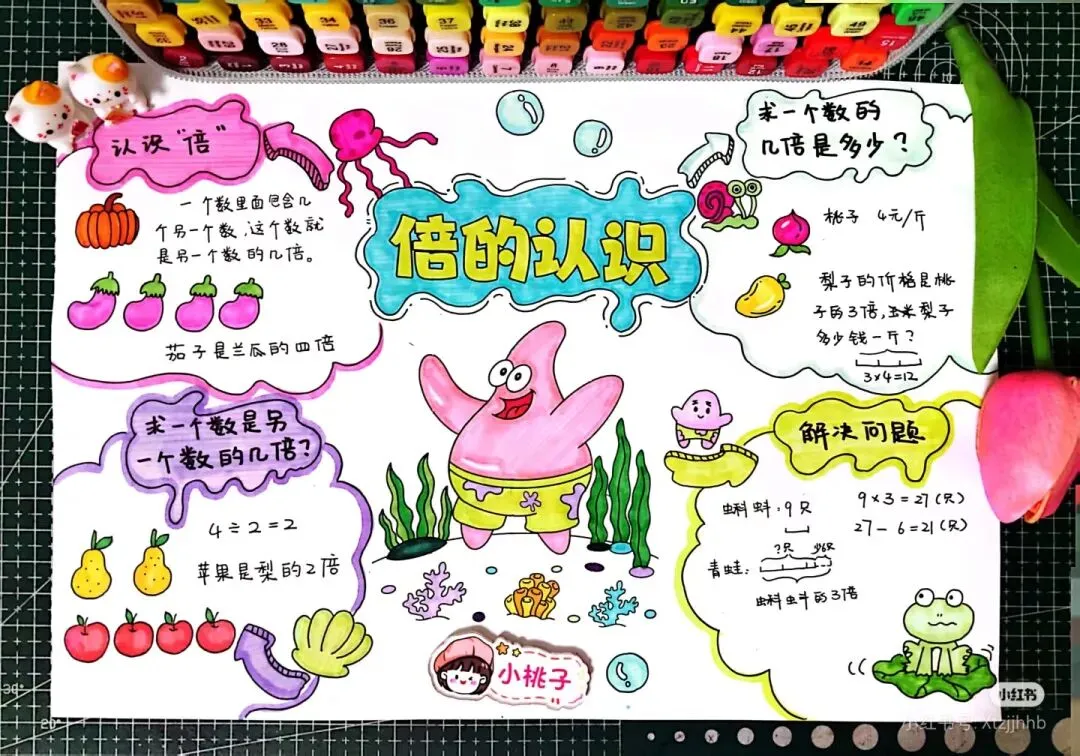 倍的认识
认识“倍”
一个数里面包含几
个另一个数,这个数就
是另一个数的几倍。
茄子是兰瓜的四倍
求一个数是另
一个数的几倍?
4÷2=2
苹果是梨的2倍
求一个数的
几倍是多少?
桃子 4元/斤
梨子的价格是桃
子的3倍,
多少钱一斤?
3×4=12
解决问题
蝌蚪:9只
9×3=27(只)
27-6=21(只)
?只 少6只
青蛙:
蝌蚪的3倍
小桃子
小红书
小红书号: xtzjjhhb